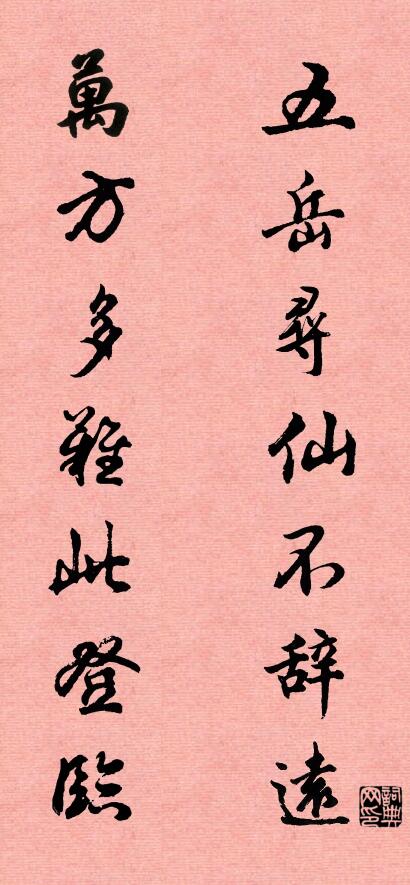 五岳尋仙不辞遠
萬方多難此登臨
詞典网印